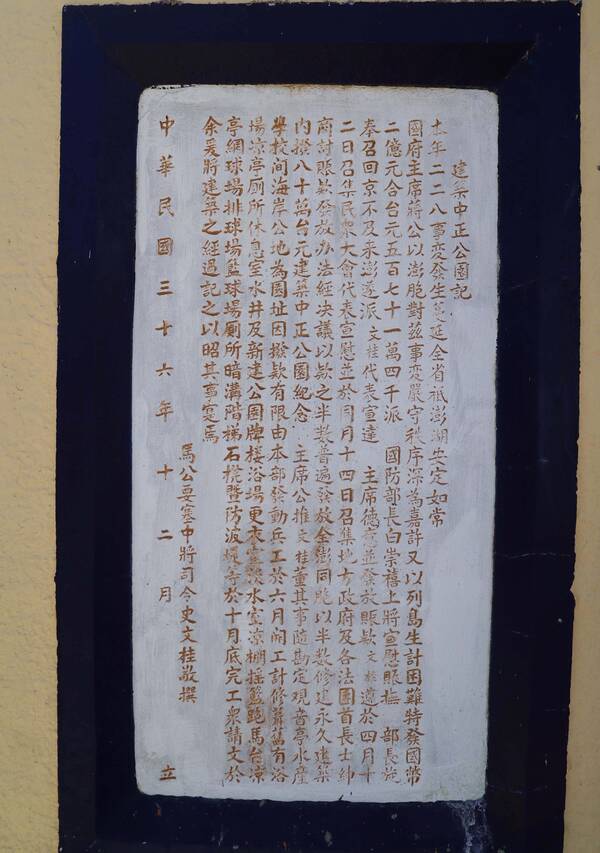 建築中正公園記
本年二二八事變發生蔓延全省祗澎湖安定如常
國府主席蔣公以澎胞對茲事變嚴守秩序深為嘉許又以列島生計困難特發國幣
二億元合台元五百七十一萬四千派 國防部長白崇禧上將宣慰賑撫 部長旋
奉召回京不及來澎遂派文桂代表宣達 主席德意並發放賑款文桂遵於四月十
二日召集民衆大會代表宣慰並於同月十四日召集地方政府及各法團首長士紳
商討賑款發放办法經决議以款之半數普遍發放全澎同胞以半數修建永久建築
內撥八十萬台元建築中正公園紀念 主席公推文桂董其事隨勘定观音亭水產
學校间海岸公地為園址因撥款有限由本部發動兵工於六月開工計修葺舊有浴
場凉亭厠所休息室水井及新建公園牌樓浴場更衣室淡水室凉棚摇籃跑馬台凉
亭網球場排球場籃球場厠所暗溝階梯石櫈暨防波堤等於十月底完工衆請文於
余爰將建築之經過記之以昭其事寔焉
馬公要塞中將司令史文桂敬撰
中華民國三十六年十二月 立